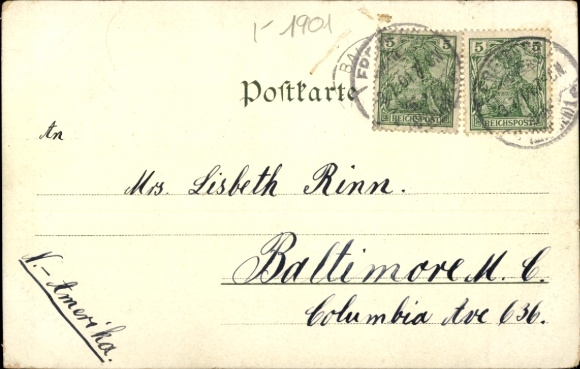 I-1901
5 5
REICHSPOST REICHSPOST
Postkarte
An
Mrs. Lisbeth Rinn.
Baltimore M. C.
Columbia Ave 636.
N.-Amerika.